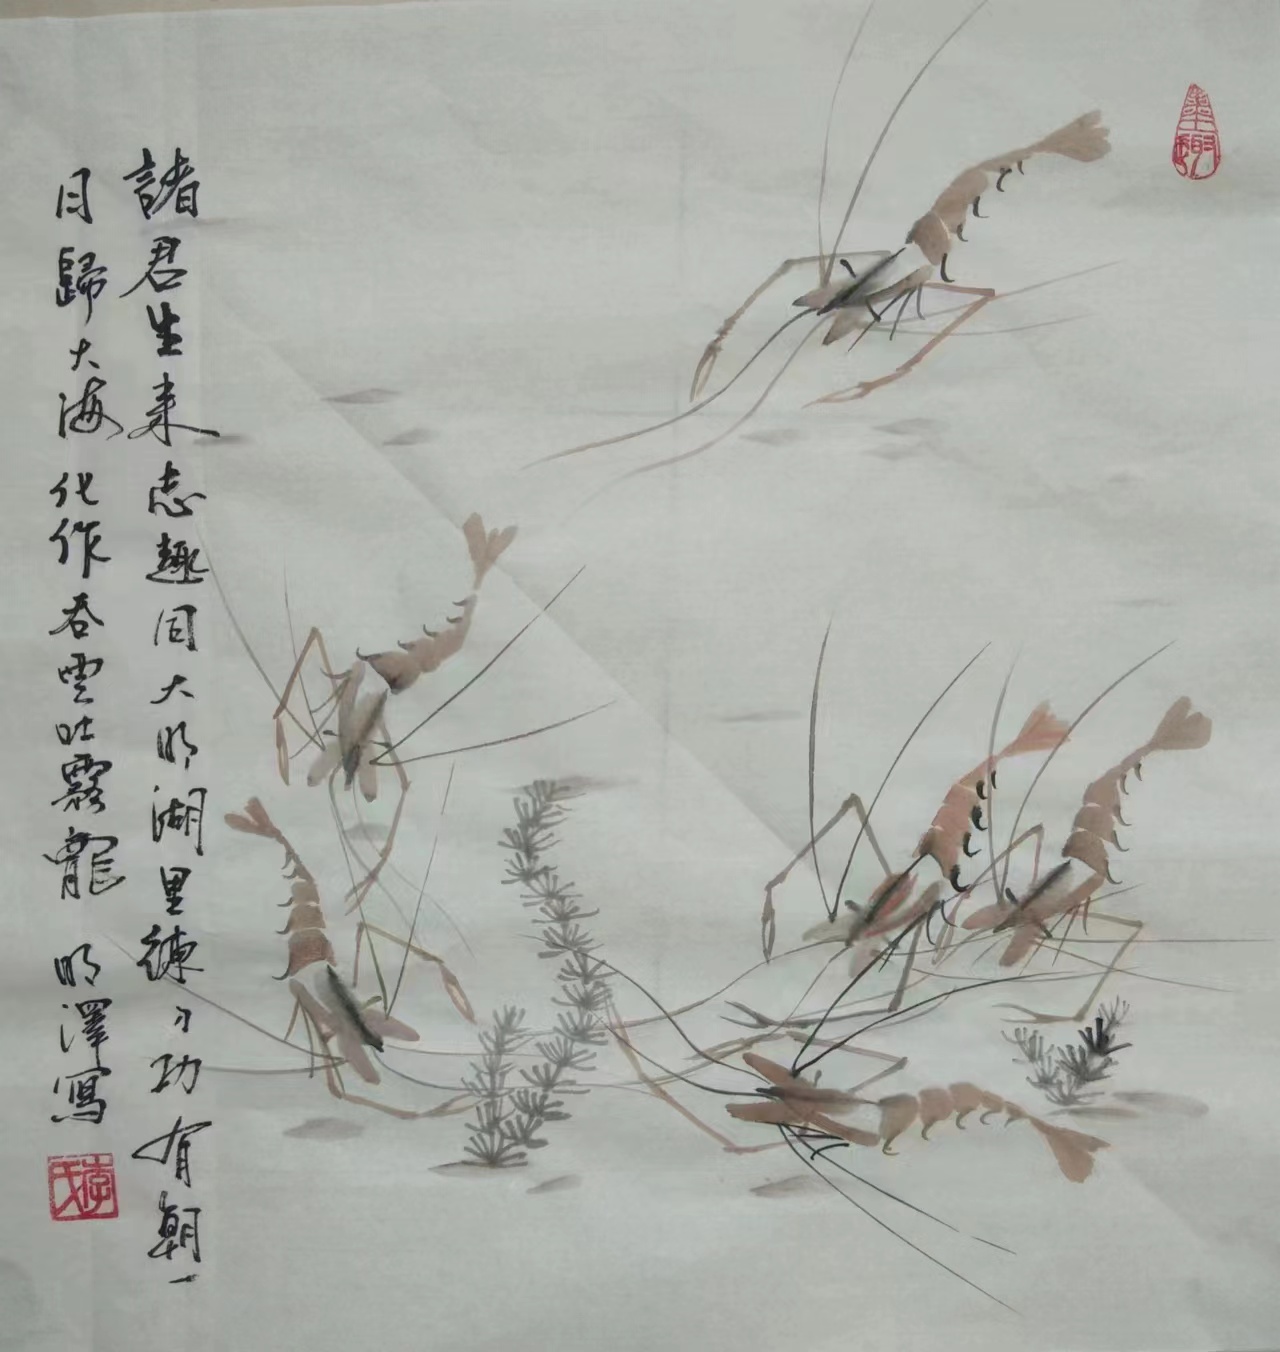 諸君生来志趣同大明湖里練習功有朝一
日歸大海化作吞雲吐霧龍 明澤寫
李氏